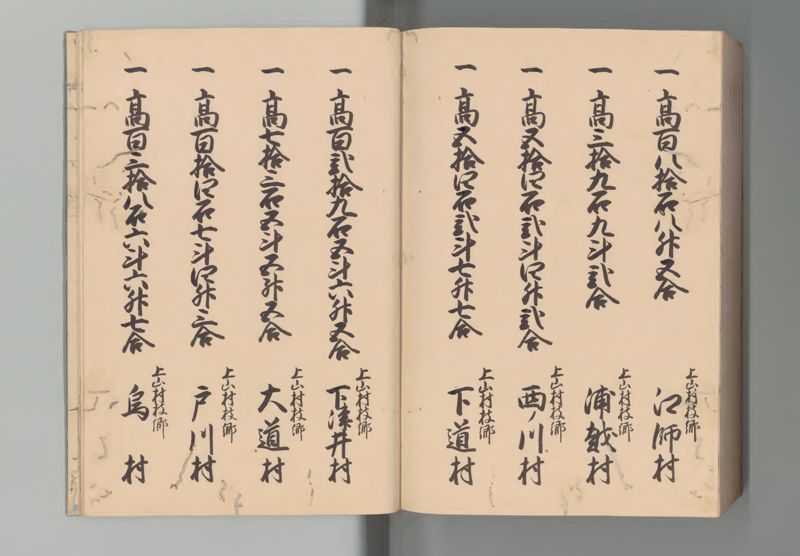 一 高百八拾石八升五合
上山村枝郷
江師村
一 高三拾九石九斗弐合
上山村枝郷
浦越村
一 高五拾四石弐斗四升弐合
上山村枝郷
西ノ川村
一 高五拾四石弐斗七升七合
上山村枝郷
下道村
一 高百弐拾九石五斗六升五合
上山村枝郷
下津井村
一 高七拾三石五斗五升五合
上山村枝郷
大道村
一 高百拾四石七斗四升三合
上山村枝郷
戸川村
一 高百三拾八石六斗六升七合
上山村枝郷
烏村